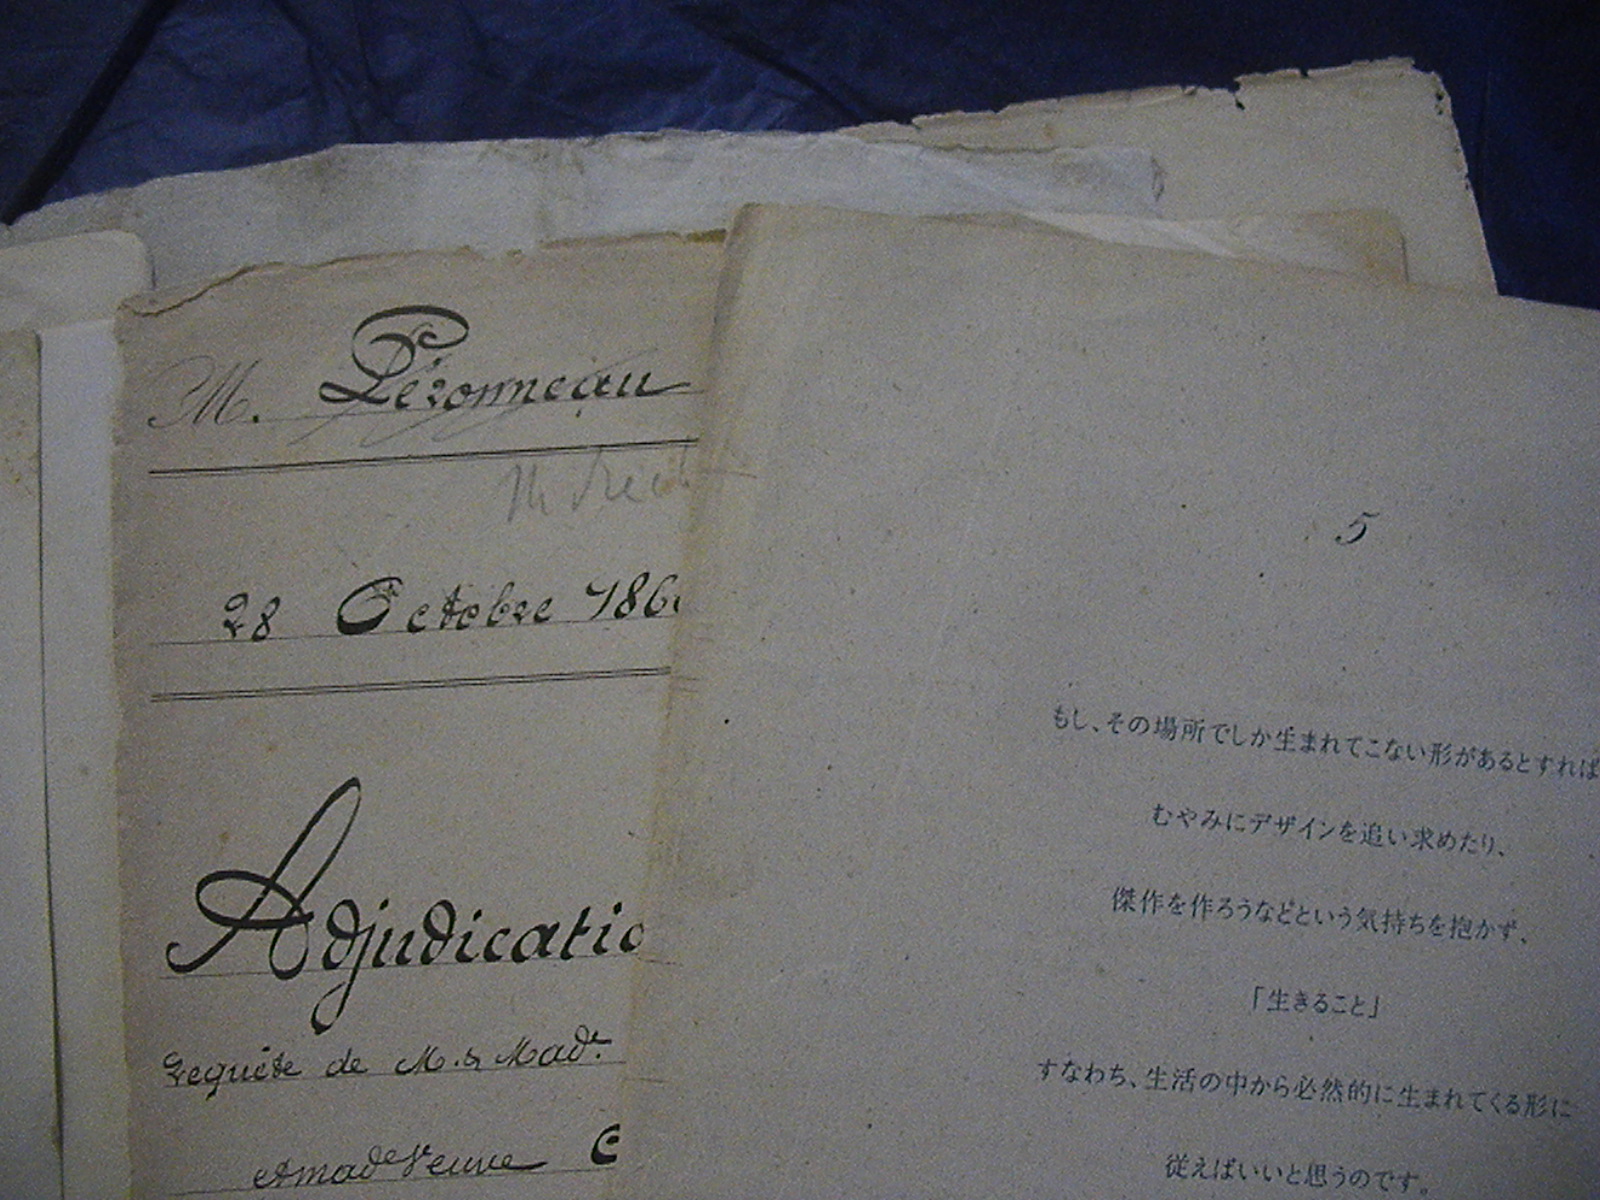 M. Péronneau
28 Octobre 186
Adjudicatio
Requête de M. & Mad.e
A mad.e Veuve C
5
もし、その場所でしか生まれてこない形があるとすれば
むやみにデザインを追い求めたり、
傑作を作ろうなどという気持ちを抱かず、
「生きること」
すなわち、生活の中から必然的に生まれてくる形に
従えばいいと思うのです。